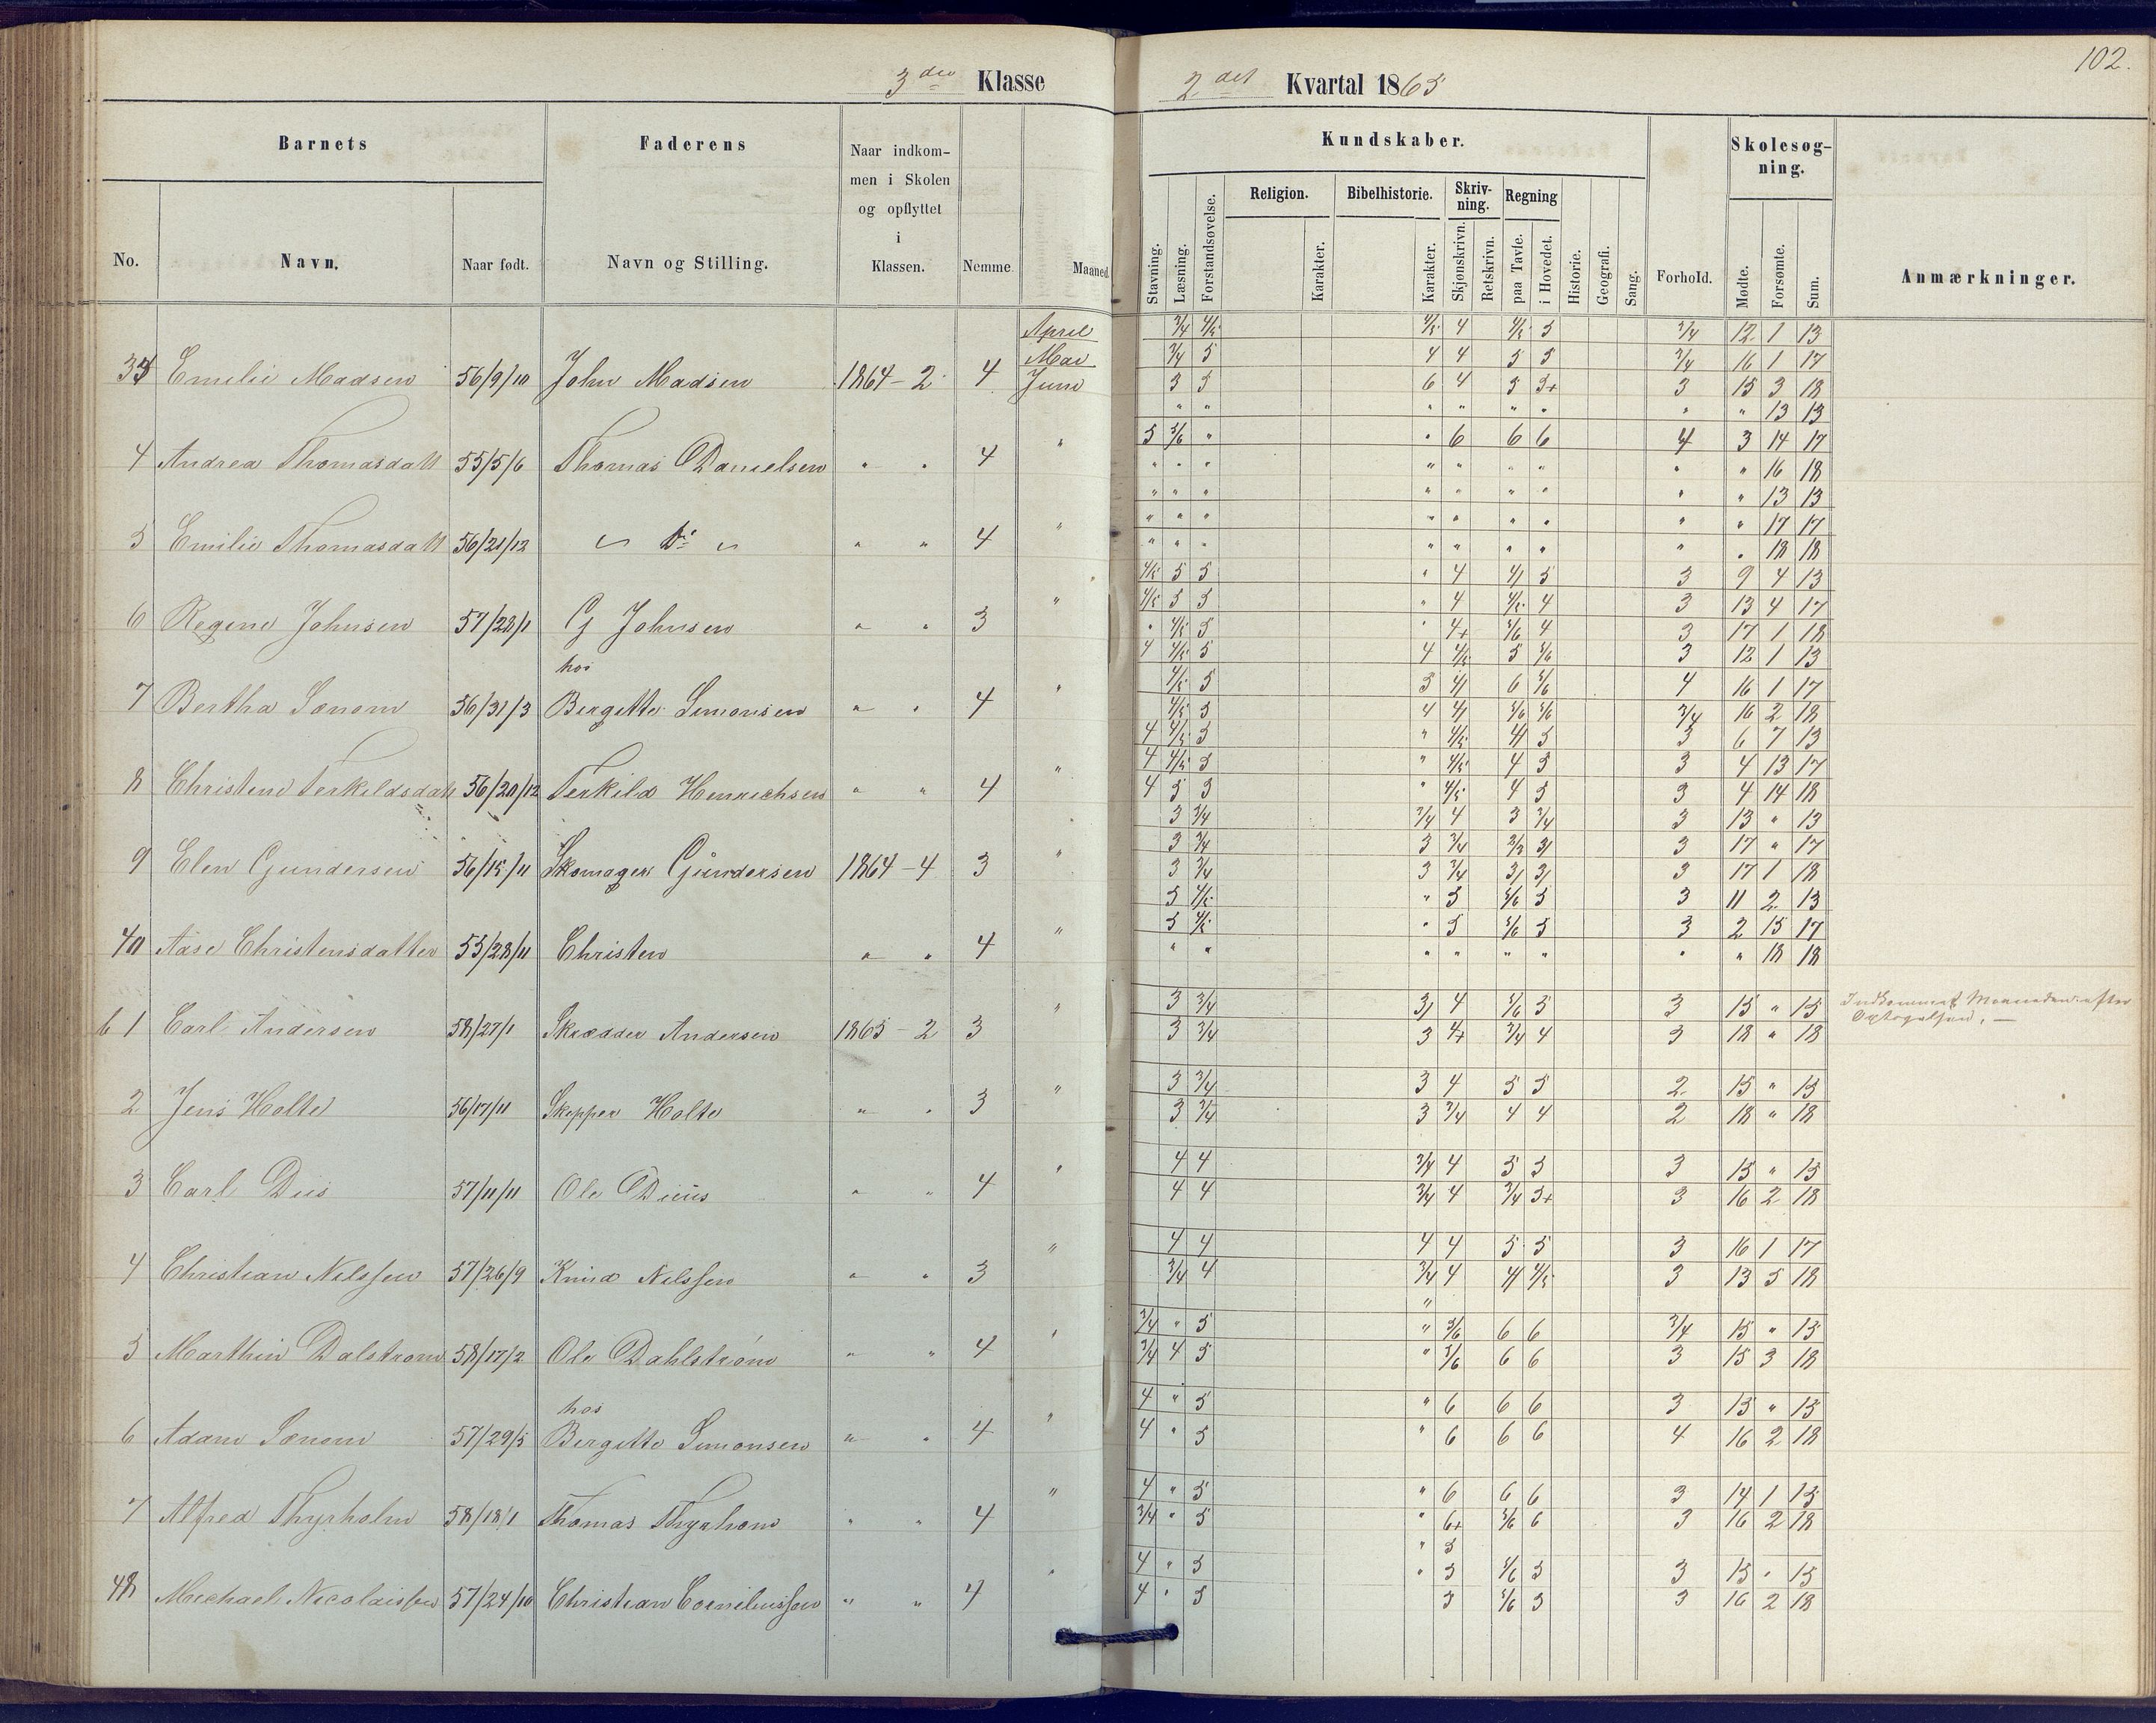 102.
3die Klasse 2det Kvartal 1865
Barnets Faderens Naar indkommen i Skolen og opflyttet i Klassen. Kundskaber. Skolesøgning.
No. Navn. Naar født. Navn og Stilling. Nemme Maaned
Stavning. Læsning. Forstandsøvelse. Religion. Karakter. Bibelhistorie. Karakter. Skrivning. Skjønskrivn. Retskrivn. Regning paa Tavle. i Hovedet. Historie. Geografi. Sang. Forhold. Mødte. Forsømte. Sum. Anmærkninger.
April 3/4 4/5 4/5 4 4/5 5 3/4 12 1 13
Mai 3/4 5 4 4 5 5 3/4 16 1 17
Emilie Madsen 56/9/10 John Madsen 1864 - 2 4 Juni 5 5 6 4 5 5+ 3 15 3 18
" " " " " " " " 13 13
5 5/6 " " 6 6 6 4 3 14 17
4 Andrea Thomasdatt 55/5/6 Thomas Danielsen " " 4 " " " " " " " " " " 16 18
" " " " " " " " " 13 13
" " " " " " " " " 17 17
5 Emilie Thomasdatt 56/21/12 do " " 4 " " " " " " " " " " 18 18
4/5 5 5 " 4 4/ 5 3 9 4 13
4/5 5 5 " 4 4/5 4 3 13 4 17
6 Regine Johnsen 57/28/1 G Johnsen " " 3 " " 4/5 5 " 4+ 5/6 4 3 17 1 18
4 4/5 5 4 4/5 5 5/6 3 12 1 13
hos 4/5 5 5 4/ 6 5/6 4 16 1 17
7 Bertha Sønom 56/31/3 Bergitte Simonsen " " 4 " 4/5 5 4 4/ 5/6 5/6 3/4 16 2 18
4 4/5 5 " 4/5 4/ 5 3 6 7 13
4 4/5 5 " 4/5 4 5 3 4 13 17
8 Christine Terkildsdatt 56/20/12 Terkild Henrichsen " " 4 " 4 5 5 " 4/5 4 5 3 4 14 18
3 3/4 3/4 4 3 3/4 3 13 " 13
3 3/4 3 3/4 2/3 3/ 3 17 " 17
9 Elen Gundersen 56/15/11 Skomager Gundersen 1864 - 4 3 " 3 3/4 3 3/4 3/ 3/ 3 17 1 18
5 4/5 " 5 5/6 5 3 11 2 13
5 4/5 " 5 5/6 5 3 2 15 17
40 Aase Christensdatter 55/28/11 Christen " " 4 " " " " " " " " " 18 18
3 3/4 3/ 4 5/6 5 3 15 " 15 Indkommet Maaneden efter
1 Carl Andersen 58/27/1 Skrædder Andersen 1865 - 2 3 " 3 3/4 3 4+ 3/4 4 3 18 " 18 Optagelsen. —
3 3/4 3 4 5 5 2 15 " 15
2 Jens Holte 56/17/11 Skipper Holte " " 3 " 3 3/4 3 3/4 4 4 2 18 " 18
4 4 3/4 4 5 5 3 15 " 15
3 Carl Dies 57/11/11 Ole Dieus " " 4 " 4 4 3/4 4 3/4 5+ 3 16 2 18
4 4 4 4 5 5 3 16 1 17
4 Christian Nilssen 57/26/9 Knud Nilssen " " 3 " 3/4 4 3/4 4 4/ 4/5 3 13 5 18
"
3/4 " 5 " 5/6 6 6 3/4 15 " 15
5 Marthin Dalstrøm 58/17/2 Ole Dahlstrøm " " 4 " 3/4 4 5 " 5/6 6 6 3 15 3 18
hos 4 " 5 " 6 6 6 3 15 " 15
6 Adam Sønom 57/29/5 Bergitte Simonsen " " 4 " 4 " 5 " 6 6 6 4 16 2 18
4 " 5 " 6 6 6 3 14 1 15
7 Alfred Thyrholm 58/18/1 Thomas Thyrholm " " 4 " 3/4 " 5 " 6+ 5/6 6 3 16 2 18
" 5
4 " 5 " 5 5/6 5 3 15 " 15
48 Michael Nicolaissen 57/24/10 Christian Corneliussen " " 4 " 4 " 5 5 5/6 5 3 16 2 18